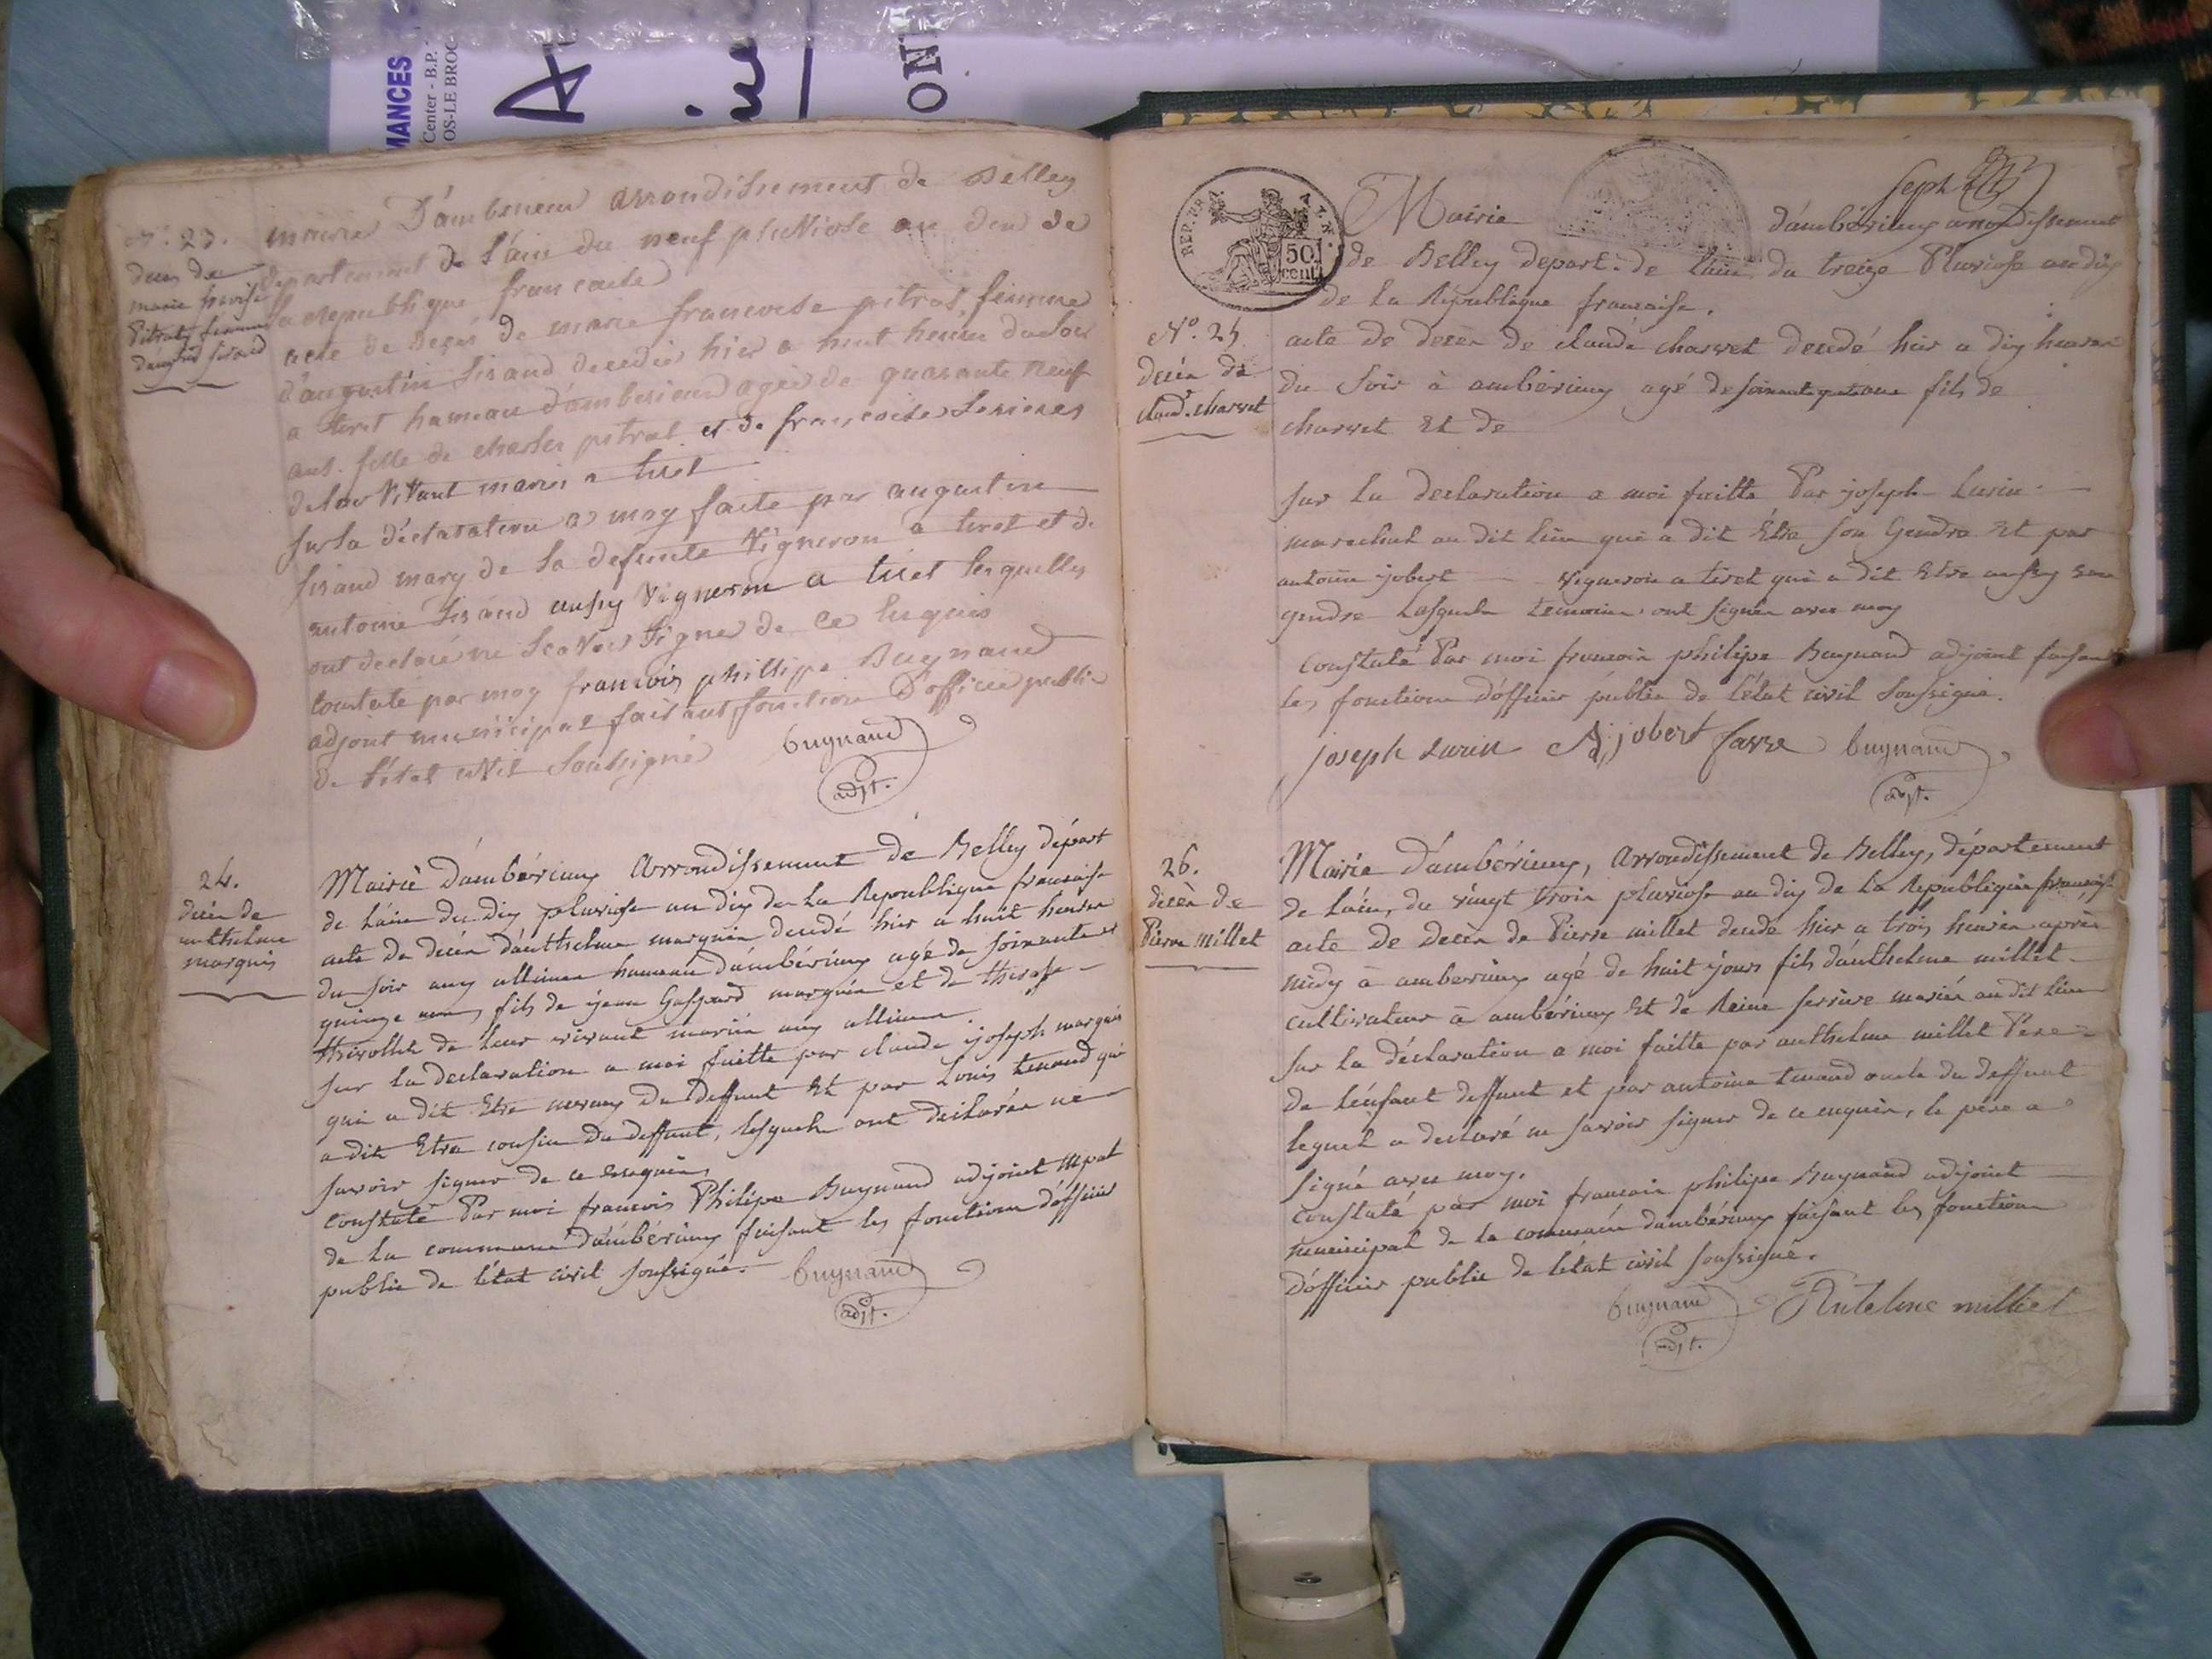 MANCES
Center - B.P.
OS-LE BROC-
ON
N°. 23.
décès de
marie francoise
Pitrat, femme
d'augustin sirand
mairie D'amberieux arrondissement de Belley
departement de l'ain du neuf pluviose an dix de
la republique francaise
acte de décés de marie francoise pitrat, femme
d'augustin sirand decedée hier a huit heures du soir
a tiret hameau d'amberieux agée de quarante neuf
ans. fille de charles pitrat et de francoise
de leur vivant mariés a tiret
sur la déclaration a moy faite par augustin
sirand mary de la defunte vigneron a tiret et d.
antoine sirand aussy vigneron a tiret lesquelles
ont declaré ne scavoir signer de ce enquis
constaté par moy francois phillipe Buynand
adjoint municipal faisant fonction D'officier public
de l'état civil soussigné
buynand
adjt.
24.
décès de
anthelme
marquis
Mairie d'ambérieux Arrondissement de Belley départ
de l'ain du dix pluviose an dix de la Republique francaise
acte de décès d'anthelme marquis decedé hier a huit heures
du soir aux allimes hameau d'ambérieux agé de soixante et
quinze ans fils de jean Gaspard marquis et de therese
thivollet de leur vivant mariés aux allimes.
sur la declaration a moi faitte par claude joseph marquis
qui a dit Etre neveux du deffunt Et par Louis tenand qui
a dit Etre cousin du deffunt, lesquels ont declarés ne
savoir signer de ce enquis
constaté Par moi francois Philipe Buynand adjoint mpal
de la commune d'ambérieux faisant les fonctions d'officier
public de l'état civil soussigné.
buynand
adjt.
REP. FRA.
50
cent.
Mairie d'ambérieux arrondissement
de Belley depart. de l'ain du treize Pluviose an dix
de la Republique francaise.
N°. 25
décès de
claude charvet
acte de décès de claude charvet decedé hier a dix heures
du soir à ambérieux agé de soixante quatre ans fils de
charvet Et de
sur la declaration a moi faitte Par joseph Lurin
marechal au dit lieu qui a dit Etre son Gendre Et par
antoine jobert vigneron a tiret qui a dit Etre aussy son
gendre Lesquels temoins ont signés avec moy
constaté Par moi francois philipe Buynand adjoint faisant
les fonctions d'officier public de l'état civil soussigné.
joseph Lurin A, jobert favre buynand
adjt.
26.
décès de
Pierre millet
Mairie d'ambérieux, Arrondissement de Belley, département
de l'ain, du vingt trois pluviose an dix de la Republique francaise
acte de décès de Pierre millet decedé hier a trois heures après
midy à amberieux agé de huit jours fils d'anthelme millet
cultivateur à ambérieux Et de Reine ferriere mariés au dit lieu
sur la déclaration a moi faitte par anthelme millet Pere
de l'enfant deffunt et par antoine tenand oncle du deffunt
lequel a declaré ne savoir signer de ce enquis, le père a
signé avec moy.
constaté par moi francois philipe Buynand adjoint
municipal de la commune d'ambérieux faisant les fonctions
d'officier public de l'état civil soussigné.
buynand Antelme milliet
adjt.